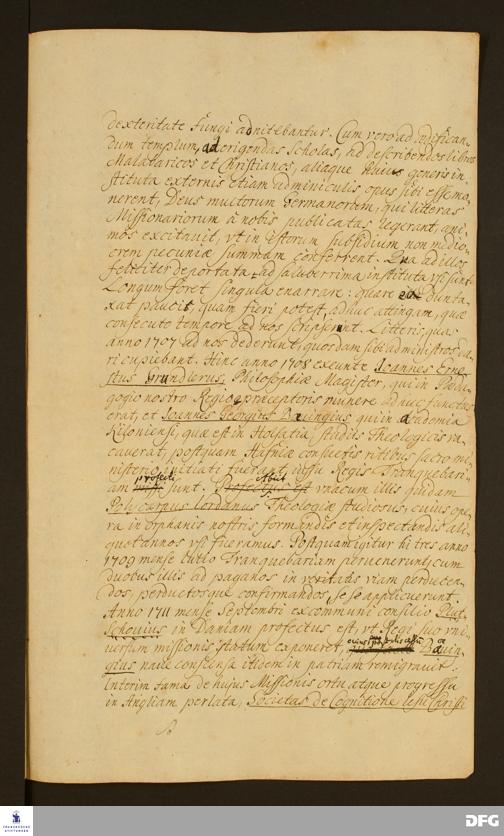 dexteritate fungi adnitebantur. Cum vero ad ædifican-
dum templum, ad erigendas scholas, ad describendos libros
Malabaricos et Christianos, aliaque huius generis in-
stituta externis etiam adminiculis opus sibi esse mo-
nerent, Deus multorum Germanorum, qui litteras
Missionariorum à nobis publicatas legerant, ani-
mos excitavit, vt in istorum subsidium non medio-
crem pecuniæ summam conferrent. Ea ad illos
feliciter deportata, ad saluberrima instituta vsi sunt.
Longum foret singula enarrare: quare dunta-
xat paucis, quam fieri potest, adhuc attingam, quæ
consecuto tempore ad nos scripserunt. Litteris, quas
anno 1707 ad nos dederunt, quosdam sibi administros da-
ri cupiebant. Hinc anno 1708 exeunte Joannes Erne-
stus Grundlerus, Philosophiæ Magister, qui in Pæda-
gogio nostro Regio præceptoris munere adhuc functus
erat, et Joannes Georgius Bövingius qui in academia
Kiloniensi, quæ est in Holsatia, studiis theologicis va-
caverat, postquam Hafniæ consuetis ritibus sacro mi-
nisterio initiati fuerant, iussu Regis Tranquebari-
profecti
am missi sunt. Profectus est vnacum illis quidam
Polycarpus Iordanus Theologiæ studiosus, cuius ope-
ra in orphanis nostris formandis et inspectandis ali-
quot annos vsi fueramus. Postquam igitur hi tres anno
1709 mense Iulio Tranquebariam pervenerunt, cum
duobus illis ad paganos in veritatis viam perducen-
dos, perductosque confirmandos, se se applicuerunt.
Anno 1711 mense Septembri ex communi consilio Plut-
schovius in Daniam profectus est, vt Regi suo vni-
versum missionis statum exponeret, Bövin-
gius nave conscensa itidem in patriam remigravit.
Interim fama de hujus Missionis ortu atque progressu
in Angliam perlata, Societas de Cognitione Iesu Christi
FRANCKESCHE STIFTUNGEN
DFG